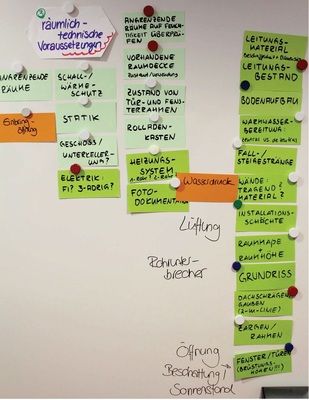 räumlich-
technische
Voraussetzungen
ANGRENZENDE
RÄUME
SCHALL-/
WÄRME-
SCHUTZ
STATIK
GESCHOSS/
UNTERKELLER-
UNG?
ELEKTRIK:
FI? 3-ADRIG?
ANGRENZENDE
RÄUME AUF FEUCH-
TIGKEIT ÜBERPRÜ-
FEN
VORHANDENE
RAUMDECKE
ZUSTAND VON
TÜR- UND FENS-
TERRAHMEN
ROLLADEN-
KASTEN
HEIZUNGS-
SYSTEM
FOTO-
DOKUMENTATION
Wasserdruck
Lüftung
Rohrunter-
brecher
Öffnung
Beschattung/
Sonnenstand
LEITUNGS-
MATERIAL
LEITUNGS-
BESTAND
BODENAUFBAU
WARMWASSER-
BEREITUNG:
FALL-/
STEIGESTRÄNGE
WÄNDE:
TRAGEND?
MATERIAL?
INSTALLATIONS-
SCHÄCHTE
RAUMMAßE +
RAUMHÖHE
GRUNDRISS
DACHSCHRÄGEN
GAUBEN
(2-M-LINIE)
ZARGEN/
RAHMEN
FENSTER/TÜREN
(BRÜSTUNGS-
HÖHEN!!!)